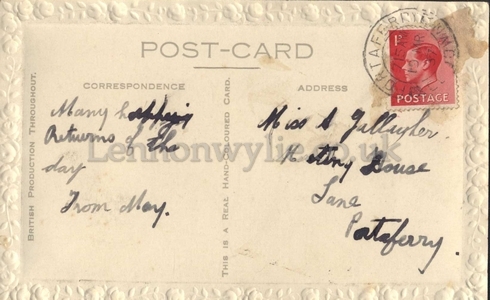 POST-CARD
CORRESPONDENCE
ADDRESS
Many happy
Returns of the
day
From May.
Miss A Gallagher
Meeting House
Lane
Portaferry.
BRITISH PRODUCTION THROUGHOUT.
THIS IS A REAL HAND-COLOURED CARD.
POSTAGE
PORTAFERRY
Lennonwylie.co.uk